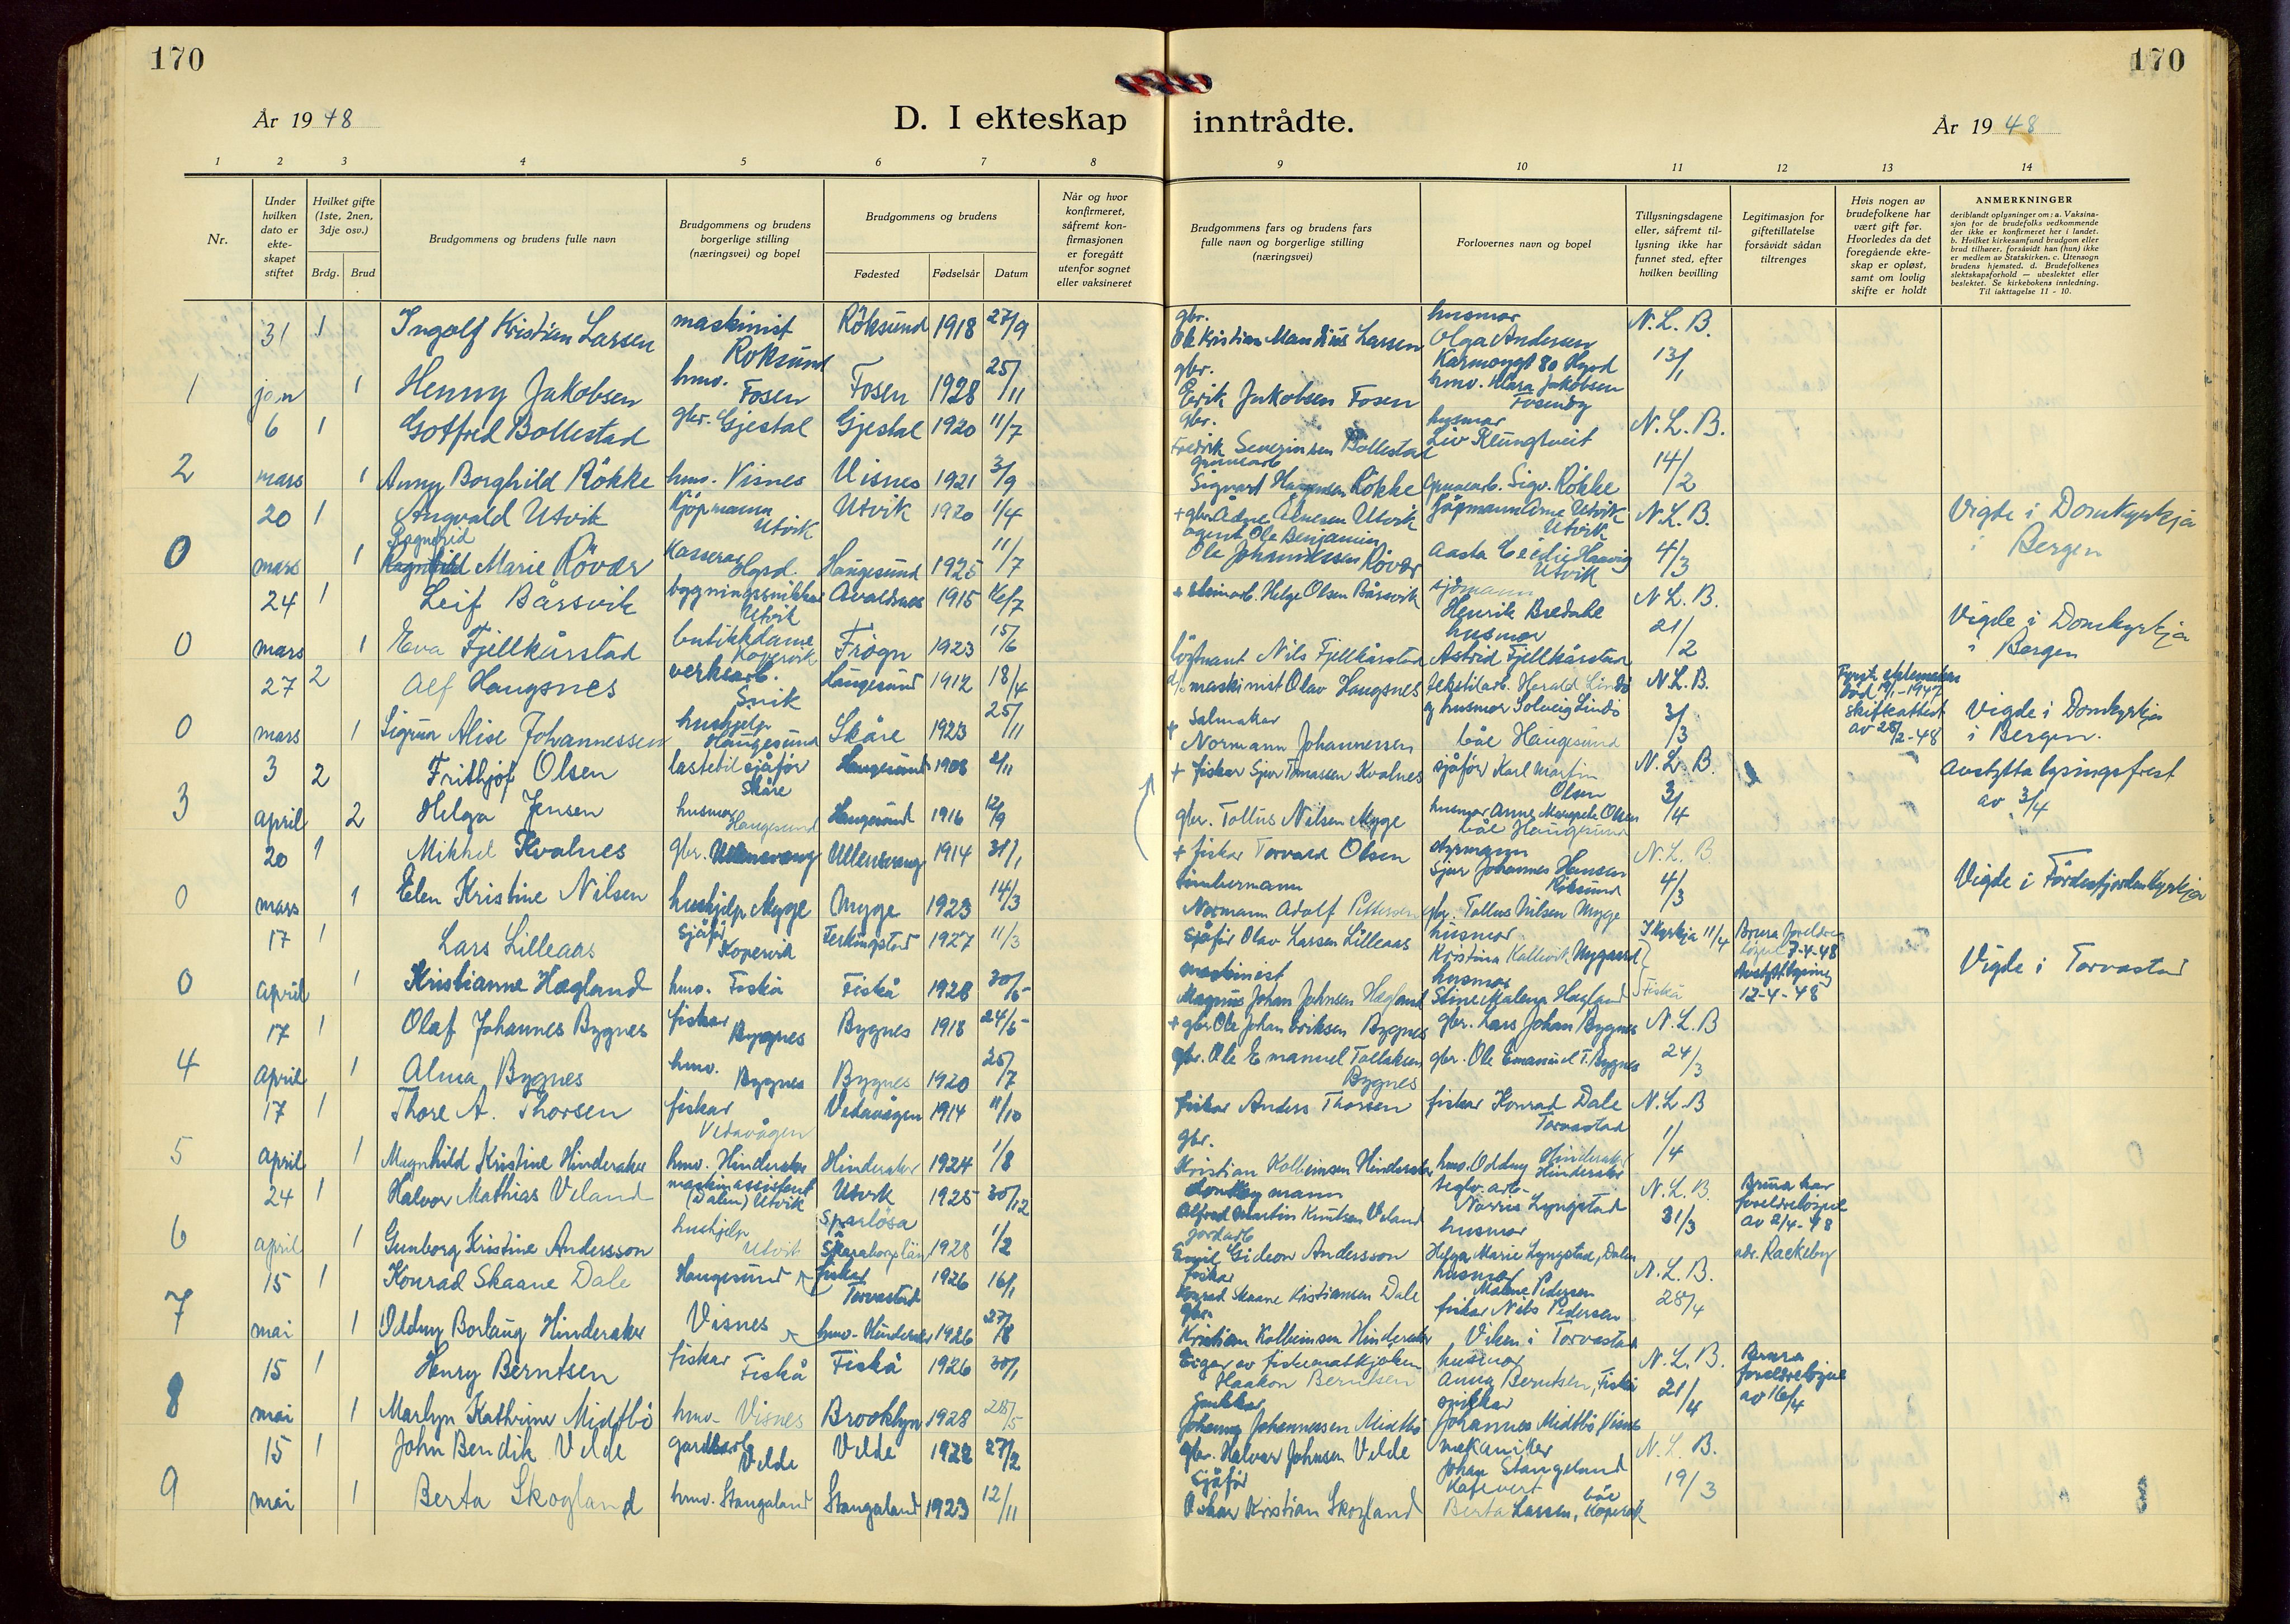 170
170
År 1948
D. I ekteskap inntrådte.
År 1948
1 2 3 4 5 6 7 8 9 10 11 12 13 14
Nr.
Under hvilken dato er ekte-skapet stiftet
Hvilket gifte (1ste, 2nen, 3dje osv.)
Brdg. Brud
Brudgommens og brudens fulle navn
Brudgommens og brudens borgerlige stilling (næringsvei) og bopel
Brudgommens og brudens
Fødested Fødselsår Datum
Når og hvor konfirmeret, såfremt kon-firmasjonen er foregått utenfor sognet eller vaksineret
Brudgommens fars og brudens fars fulle navn og borgerlige stilling (næringsvei)
Forlovernes navn og bopel
Tillysningsdagene eller, såfremt til-lysning ikke har funnet sted, efter hvilken bevilling
Legitimasjon for giftetillatelse forsåvidt sådan tiltrenges
Hvis nogen av brudefolkene har vært gift før. Hvorledes da det foregående ekte-skap er opløst, samt om lovlig skifte er holdt
ANMERKNINGER
deriblandt oplysninger om: a. Vaksina-sjon for de brudefolks vedkommende der ikke er konfirmeret her i landet. b. Hvilket kirkesamfund brudgom eller brud tilhører, forsåvidt han (hun) ikke er medlem av Statskirken. c. Utensogn brudens hjemsted. d. Brudefolkenes slektskapsforhold — ubeslektet eller beslektet. Se kirkebokens innledning. Til iakttagelse 11 - 10.
31 1 Ingolf Kristian Larsen maskinist Röksund Röksund 1918 27/9 gbr. Ole Kristian Mandius Larsen husmor Olga Andersen Karmøygt 80 Hgsd N.L.B.
1 jan 1 Henny Jakobsen hmv. Fosen Fosen 1928 25/11 gbr. Eirik Jakobsen Fosen hmv. Klara Jakobsen Fosenøy 13/1
6 1 Gotfred Bollestad gbr. Gjestal Gjestal 1920 11/7 gbr. Fredrik Severinsen Bollestad husmor Liv Klungtveit N.L.B.
2 mars 1 Anny Borghild Rökke hmv. Visnes Visnes 1921 3/9 gruvearb Sigvart Rökke gruvearb. Sigv. Rökke 14/2
20 1 Angvald Utvik Kjöpmann Utvik Utvik 1920 1/4 + gbr. Ådne Ånesen Utvik Kjöpmann Arne Utvik Utvik N.L.B. Vigde i Domkyrkja i Bergen
0 mars 1 Ragnfrid Marie Rövær Kasserar Hgsd. Haugesund 1925 11/7 agent Ole Benjamin Ole Johannessen Rövær Aasta Haavig Utvik 4/3
24 1 Leif Bårsvik bygningssnikkar Utvik Avaldsnes 1915 16/7 + steinarb. Helge Olsen Bårsvik sjömann Henrik Bredahl N.L.B. Vigde i Domkyrkja i Bergen
0 mars 1 Eva Fjellkårstad butikkdame Kopervik Frogn 1923 15/6 löytnant Nils Fjellkårstad husmor Astrid Fjellkårstad 21/2
27 2 Alf Haugsnes verksarb. Snik Haugesund 1912 18/4 maskinist Olav Haugsnes tekstilarb. Harald Lindö N.L.B. Fyrste ektemaken död 19/1-1947 skifteattest av 28/2-48 Vigde i Domkyrkja i Bergen.
0 mars 1 Sigrun Alise Johannessen hushjelp Haugesund Skåre 1923 25/11 + Salmakar Normann Johannessen og husmor Solveig Lindö båe Haugesund 3/3
3 2 Frithjof Olsen lastebilsjåför Skåre Haugesund 1908 2/11 + fiskar Sjur Tomassen Kvalnes sjåför Karl Martin Olsen N.L.B. Avstytta lysingsfrest av 3/4
3 april 2 Helga Jensen husmor Haugesund Haugesund 1916 12/9 gbr. Tollus Nilsen Myge husmor Anne Margrete Olsen båe Haugesund 3/4
20 1 Mikkel Kvalnes gbr. Ullensvang Ullensvang 1914 31/1 + fiskar Torvald Olsen styrmann Sjur Johannes Hansen Röksund N.L.B. Vigde i Fördesfjorden Kyrkja
0 mars 1 Elen Kristine Nilsen hushjelp Myge Myge 1923 14/3 timbermann Normann Adolf Pettersen gbr. Tollus Nilsen Myge 4/3
17 1 Lars Lilleaas Sjåför Kopervik Ferkingstad 1927 11/3 Sjåför Olav Larsen Lilleaas husmor Kristina Kallevik Nygaard I Kyrkja 11/4 Brura foreldre löyve 7-4-48 Vigde i Torvastad
0 april 1 Kristianne Hagland hmv. Fiskå Fiskå 1928 30/5 maskinist Magnus Johan Johnsen Hagland husmor Stine Malena Hagland Fiskå Avstytt lysing 12-4-48
17 1 Olaf Johannes Bygnes fiskar Bygnes Bygnes 1918 24/5 + gbr. Ole Johan Eriksen Bygnes gbr. Lars Johan Bygnes N.L.B
4 april 1 Alma Bygnes hmv. Bygnes Bygnes 1920 25/7 gbr. Ole Emanuel Tollaksen Bygnes gbr. Ole Emanuel T. Bygnes 24/3
17 1 Thore A. Thorsen fiskar Vedavågen Vedavågen 1914 11/10 fiskar Anders Thorsen fiskar Konrad Dale Torvastad N.L.B
5 april 1 Magnhild Kristine Hinderaker hmv. Hinderaker Hinderaker 1924 1/8 gbr. Kristian Kolbeinsen Hinderaker hmv. Oddny Hinderaker Hinderaker 1/4
24 1 Halvor Mathias Veland maskinassistent (Dalen) Utvik Utvik 1925 30/12 donkeymann Alfred Martin Knutsen Veland teglv. arb. Norvis Lyngstad N.L.B. Bruna har foreldreløyve av 2/4-48
6 april 1 Gunborg Kristine Andersson hushjelp Utvik Sparlösa Skaraborgs län 1928 1/2 jordarb Emil Gideon Andersson husmor Helga Marie Lyngstad, Dalen 31/3 adr. Rackeby
15 1 Konrad Skaane Dale Haugesund fiskar Torvastad 1926 16/1 fiskar Konrad Skaane Kristiansen Dale husmor Malene Pedersen N.L.B.
7 mai 1 Oddny Borlaug Hinderaker Visnes hmv. Hinderaker 1926 27/8 gbr. Kristian Kolbeinsen Hinderaker fiskar Nils Pedersen Viken i Torvastad 28/4
15 1 Henry Berntsen fiskar Fiskå Fiskå 1926 30/1 Eigar av fiskematkjøken Haakon Berntsen husmor Anna Berntsen, Fiskå N.L.B. Brura foreldreløyve av 16/4
8 mai 1 Marlyn Kathrine Midtbö hmv. Visnes Brooklyn 1928 28/5 Snikkar Johannes Johannessen Midtbö snikkar Johannes Midtbö, Visnes 21/4
15 1 John Bendik Velde gardbarb Velde Velde 1922 27/2 gbr. Halvor Johnsen Velde mekaniker Johan Stangeland N.L.B.
9 mai 1 Berta Skogland hmv. Stangaland Stangaland 1923 12/11 Sjåför Oskar Kristian Skogland Kafévert Berta Larsen, båe Kopervik 19/3